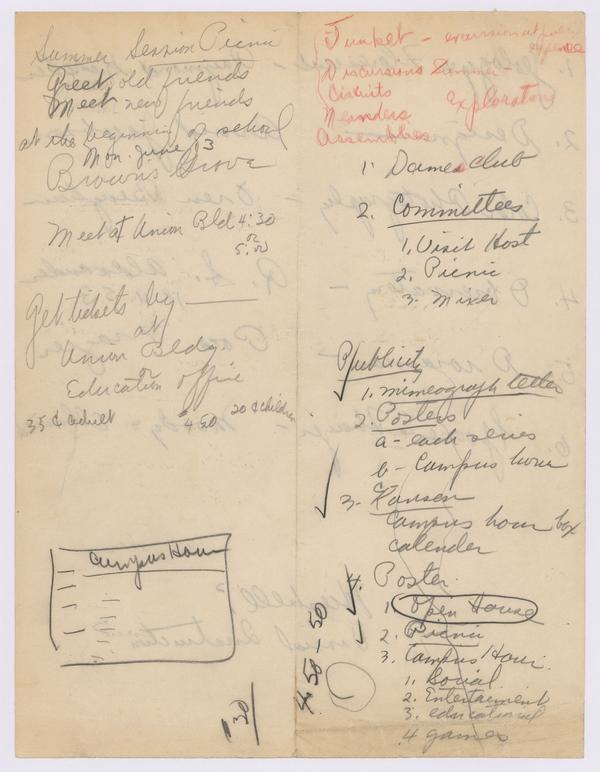 Summer Session Picnic
Greet old friends
Meet new friends
at the beginning of school
Mon. June 13
Browns Grove
Meet at Union Bld 4:30
or
5:00
Get tickets by ———
at
Union Bldg
or
Education office
35¢ adult 20¢ children
4 50
Campus Hour
$30
Junket — excursion at public expense
Discursions Summer —
Circuits
Meanders Exploratory
Assemblies
1. Dames club
2. Committees
1. Visit Host
2. Picnic
3. Mixer
Publicity
1. mimeograph letter
2. Posters
a - each series
b - Campus hour
3. Hansen
Campus hour box
calender
4. Poster
1. Open House
2. Picnic
3. Campus Hour
1. Social
2. Entertainment
3. educational
4 games